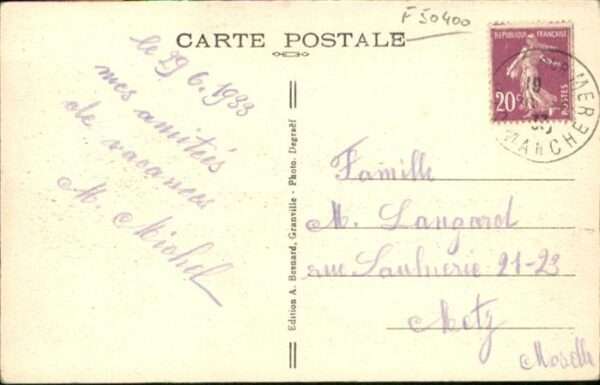 F 50400
CARTE POSTALE
le 29.6.1933
mes amitiés
de vacances
M. Michel
REPUBLIQUE FRANÇAISE
20c
POSTES
MER
MANCHE
Edition A. Besnard, Granville - Photo. Degraëf
Famille
M. Langard
rue Saulnerie 21-23
Metz
Moselle